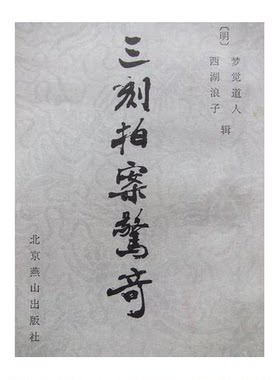 〔明〕
梦觉道人
西湖浪子
辑
三刻拍案驚奇
北京燕山出版社